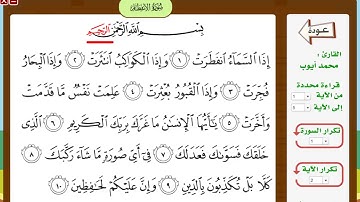 سُورَةُ الانفِطَار
بِسْمِ اللَّهِ الرَّحْمَٰنِ الرَّحِيمِ
إِذَا السَّمَاءُ انفَطَرَتْ ١ وَإِذَا الْكَوَاكِبُ انتَثَرَتْ ٢ وَإِذَا الْبِحَارُ
فُجِّرَتْ ٣ وَإِذَا الْقُبُورُ بُعْثِرَتْ ٤ عَلِمَتْ نَفْسٌ مَّا قَدَّمَتْ
وَأَخَّرَتْ ٥ يَٰأَيُّهَا الْإِنسَٰنُ مَا غَرَّكَ بِرَبِّكَ الْكَرِيمِ ٦ الَّذِي
خَلَقَكَ فَسَوَّىٰكَ فَعَدَلَكَ ٧ فِي أَيِّ صُورَةٍ مَّا شَاءَ رَكَّبَكَ ٨
كَلَّا بَلْ تُكَذِّبُونَ بِالدِّينِ ٩ وَإِنَّ عَلَيْكُمْ لَحَٰفِظِينَ ١٠
عـودة
القارئ :
محمد أيوب
قراءة محددة
من الآية 1
إلى الآية 5
تكرار السورة
1
تكرار الآية
2